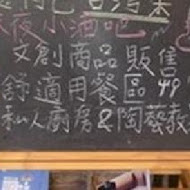 夜小酒吧~
文創商品販售
舒適用餐區
私人廚房&陶藝教